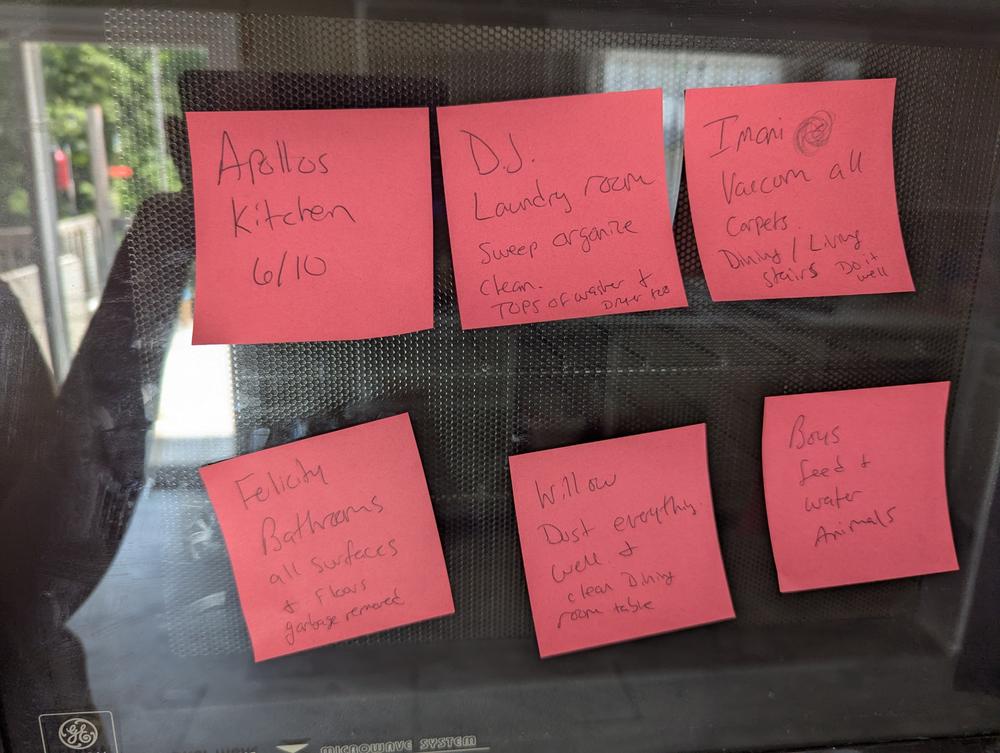 Apollos
Kitchen
6/10
D.J.
Laundry room
Sweep organize
clean.
TOPS of washer +
Dryer too
Imani
Vaccum all
Carpets.
Dining / Living
stairs Do it
well
Felicity
Bathrooms
all surfaces
+ floors
garbage removed
Willow
Dust everything.
well +
clean Dining
room table
Boys
feed +
water
Animals
GE
MICROWAVE SYSTEM